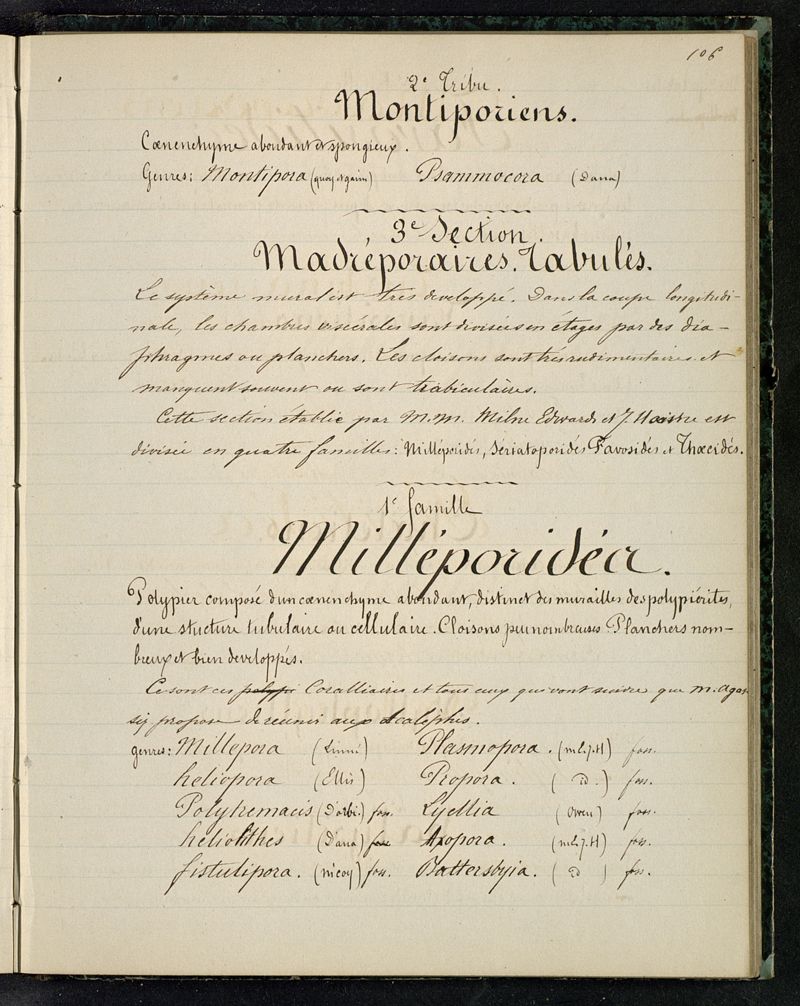 106
2e Tribu.
Montiporiens.
Cœnenchyme abondant et spongieux.
Genres: Montipora (quoy et gaim) Psammocora (Dana)
3e Section.
Madréporaires. Tabulés.
Le système mural est très developpé. Dans la coupe longitudi-
nale, les chambres viscérales sont divisées en étages par des dia-
phragmes ou planchers. Les cloisons sont très rudimentaires et
manquent souvent ou sont trabiculaires.
Cette section établie par M.M. Milne Edwards et J. Haime est
divisée en quatre familles: Milléporidés, Sériatoporidés Favosidés et Thœcidés.
1e famille
Milléporidéa.
Polypier composé d'un cœnenchyme abondant, distinct des murailles des polypiérites,
d'une stucture tubulaire ou cellulaire. Cloisons peu nombreuses Planchers nom-
breux et bien developpés.
Ce sont ces polypi Coralliaires et tous ceux qui vont suivre que M. Agas-
siz propose de réunir aux Acalèphes.
genres: Millepora (Linné) Plasmopora. (ml. J. H) foss.
heliopora (Ellis) Propora. (id.) foss.
Polytremacis (D'orbi.) foss. Lyellia (Owen) foss.
heliolithes (Dana) foss Axopora. (ml. J. H) foss.
fistulipora. (Mccoy) foss. Battersbyia. (id) foss.